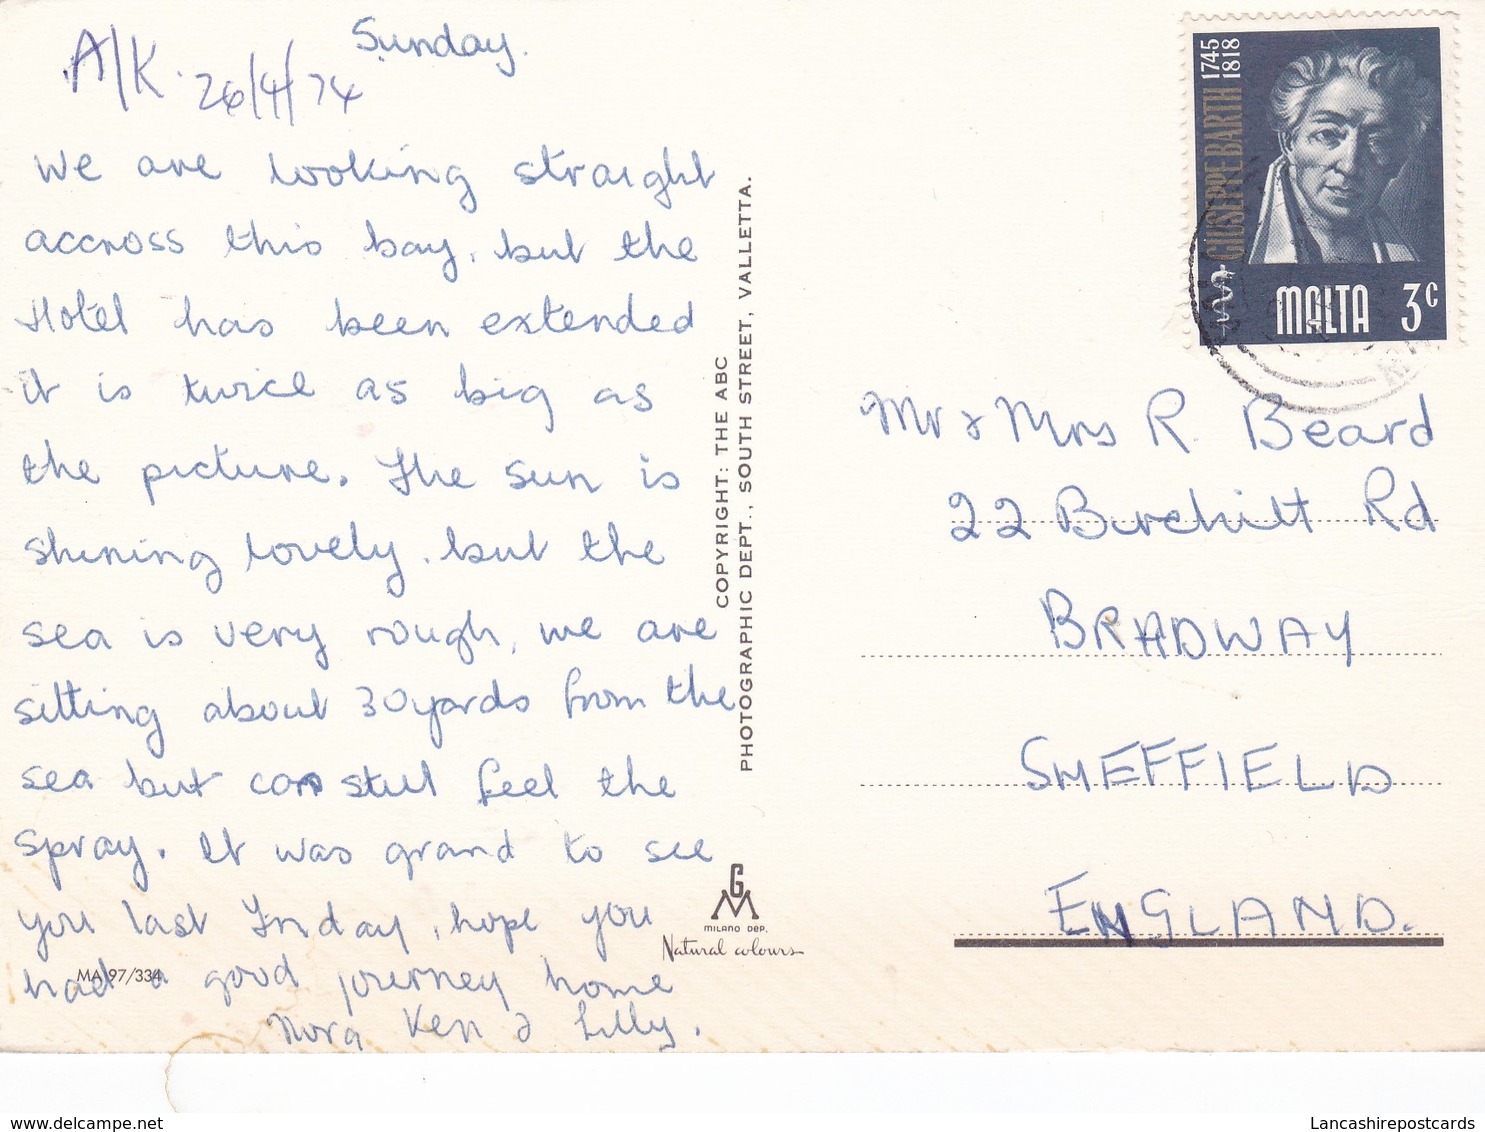 Sunday.
A/K 26/4/74
We are looking straight
accross this bay, but the
Hotel has been extended
it is twice as big as
the picture. The sun is
shining lovely. but the
sea is very rough, we are
sitting about 30yards from the
sea but can still feel the
spray. It was grand to see
you last Friday, hope you
had a good journey home
Nora Ken & Lilly.
MA 97/334
COPYRIGHT: THE ABC
PHOTOGRAPHIC DEPT., SOUTH STREET, VALLETTA.
GM
MILANO DEP.
Natural colours
GIUSEPPE BARTH 1745
1818
MALTA 3c
Mr & Mrs R. Beard
22 Birchitt Rd
BRADWAY
SHEFFIELD
ENGLAND.
delcampe.net
Lancashirepostcards